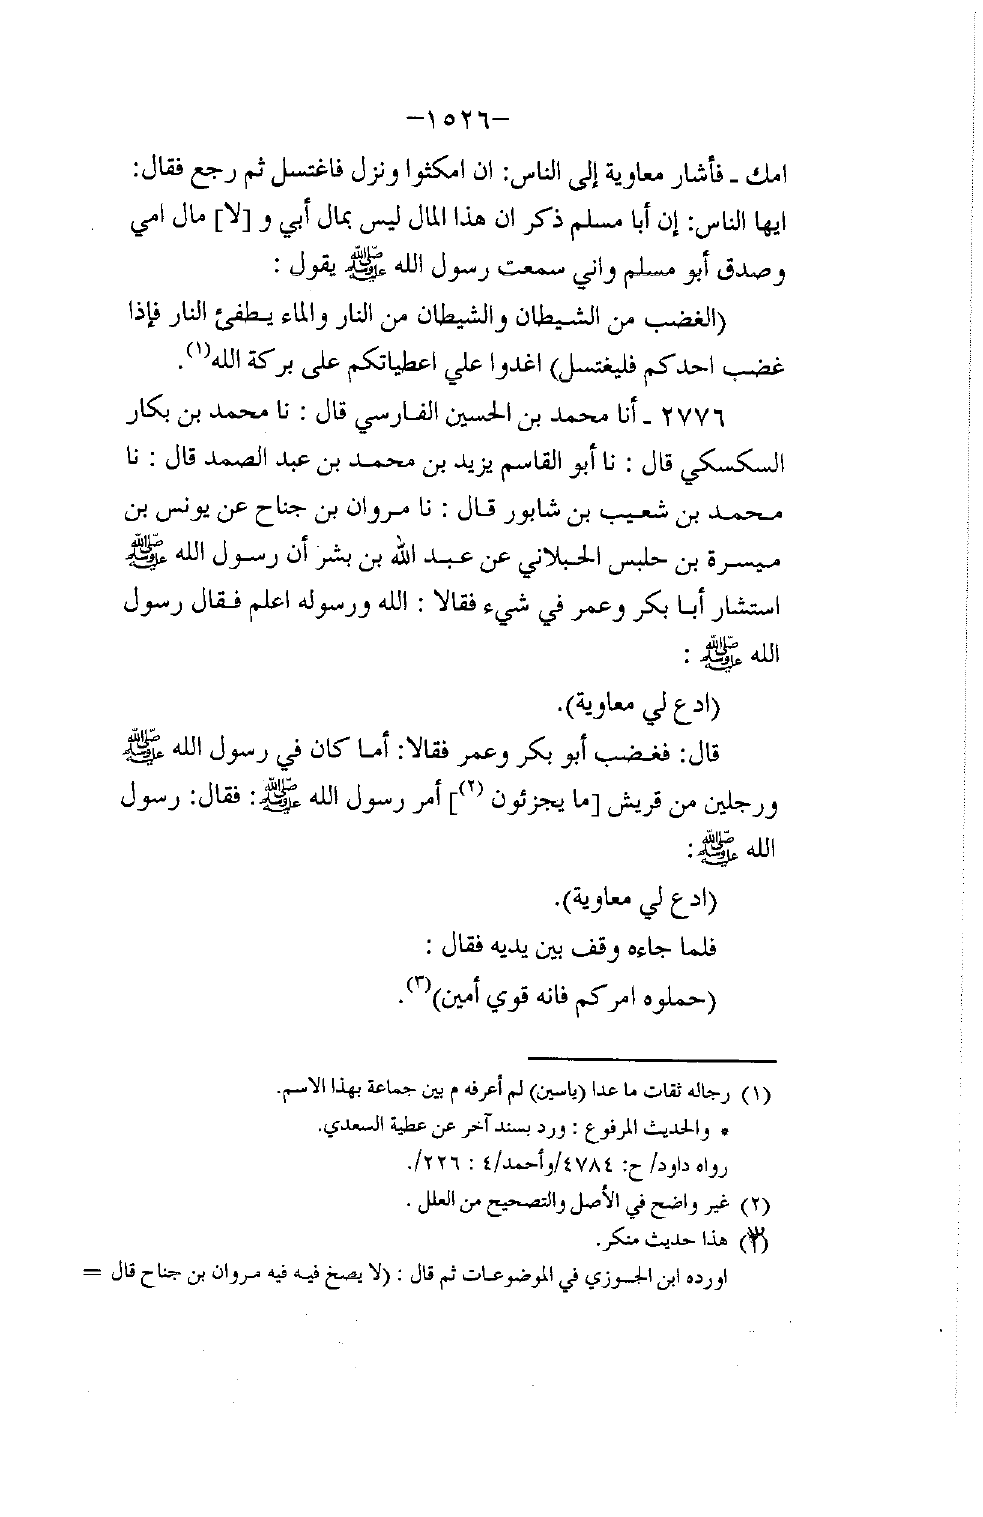 -١٥٢٦-
امك ـ فأشار معاوية إلى الناس: ان امكثوا ونزل فاغتسل ثم رجع فقال:
ايها الناس: إن أبا مسلم ذكر ان هذا المال ليس بمال أبي و [لا] مال امي
وصدق أبو مسلم واني سمعت رسول الله ﷺ يقول :
(الغضب من الشيطان والشيطان من النار والماء يطفئ النار فإذا
غضب احدكم فليغتسل) اغدوا علي اعطياتكم على بركة الله(١).
٢٧٧٦ ـ أنا محمد بن الحسين الفارسي قال : نا محمد بن بكار
السكسكي قال : نا أبو القاسم يزيد بن محمد بن عبد الصمد قال : نا
محمد بن شعيب بن شابور قال : نا مروان بن جناح عن يونس بن
ميسرة بن حلبس الحبلاني عن عبد الله بن بشر أن رسول الله ﷺ
استشار أبا بكر وعمر في شيء فقالا : الله ورسوله اعلم فقال رسول
الله ﷺ :
(ادع لي معاوية).
قال: فغضب أبو بكر وعمر فقالا: أما كان في رسول الله ﷺ
ورجلين من قريش [ما يجزئون (٢)] أمر رسول الله ﷺ: فقال: رسول
الله ﷺ:
(ادع لي معاوية).
فلما جاءه وقف بين يديه فقال :
(حملوه امركم فانه قوي أمين)(٣).
(١) رجاله ثقات ما عدا (ياسين) لم أعرفه م بين جماعة بهذا الاسم.
* والحديث المرفوع : ورد بسند آخر عن عطية السعدي.
رواه داود/ ح: ٤٧٨٤/وأحمد/٤ : ٢٢٦/.
(٢) غير واضح في الأصل والتصحيح من العلل .
(٣) هذا حديث منكر.
اورده ابن الجوزي في الموضوعات ثم قال : (لا يصخ فيه فيه مروان بن جناح قال =